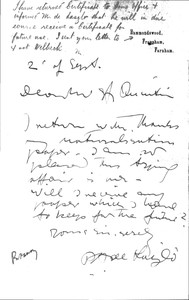 I have returned Certificate to Home Office &
informed Mr de Laszlo that he will in due
course receive a Certificate for
future use. Sent your letter to
Hammondswood,
Frensham,
Farnham.
2nd of Sept.
Dear Mr St Quintin
I return with thanks
my naturalisation
paper. I am so
pleased this trying
affair is over
Will I receive any
paper which I have
to keep for the future?
yours sincerely
Laszlo